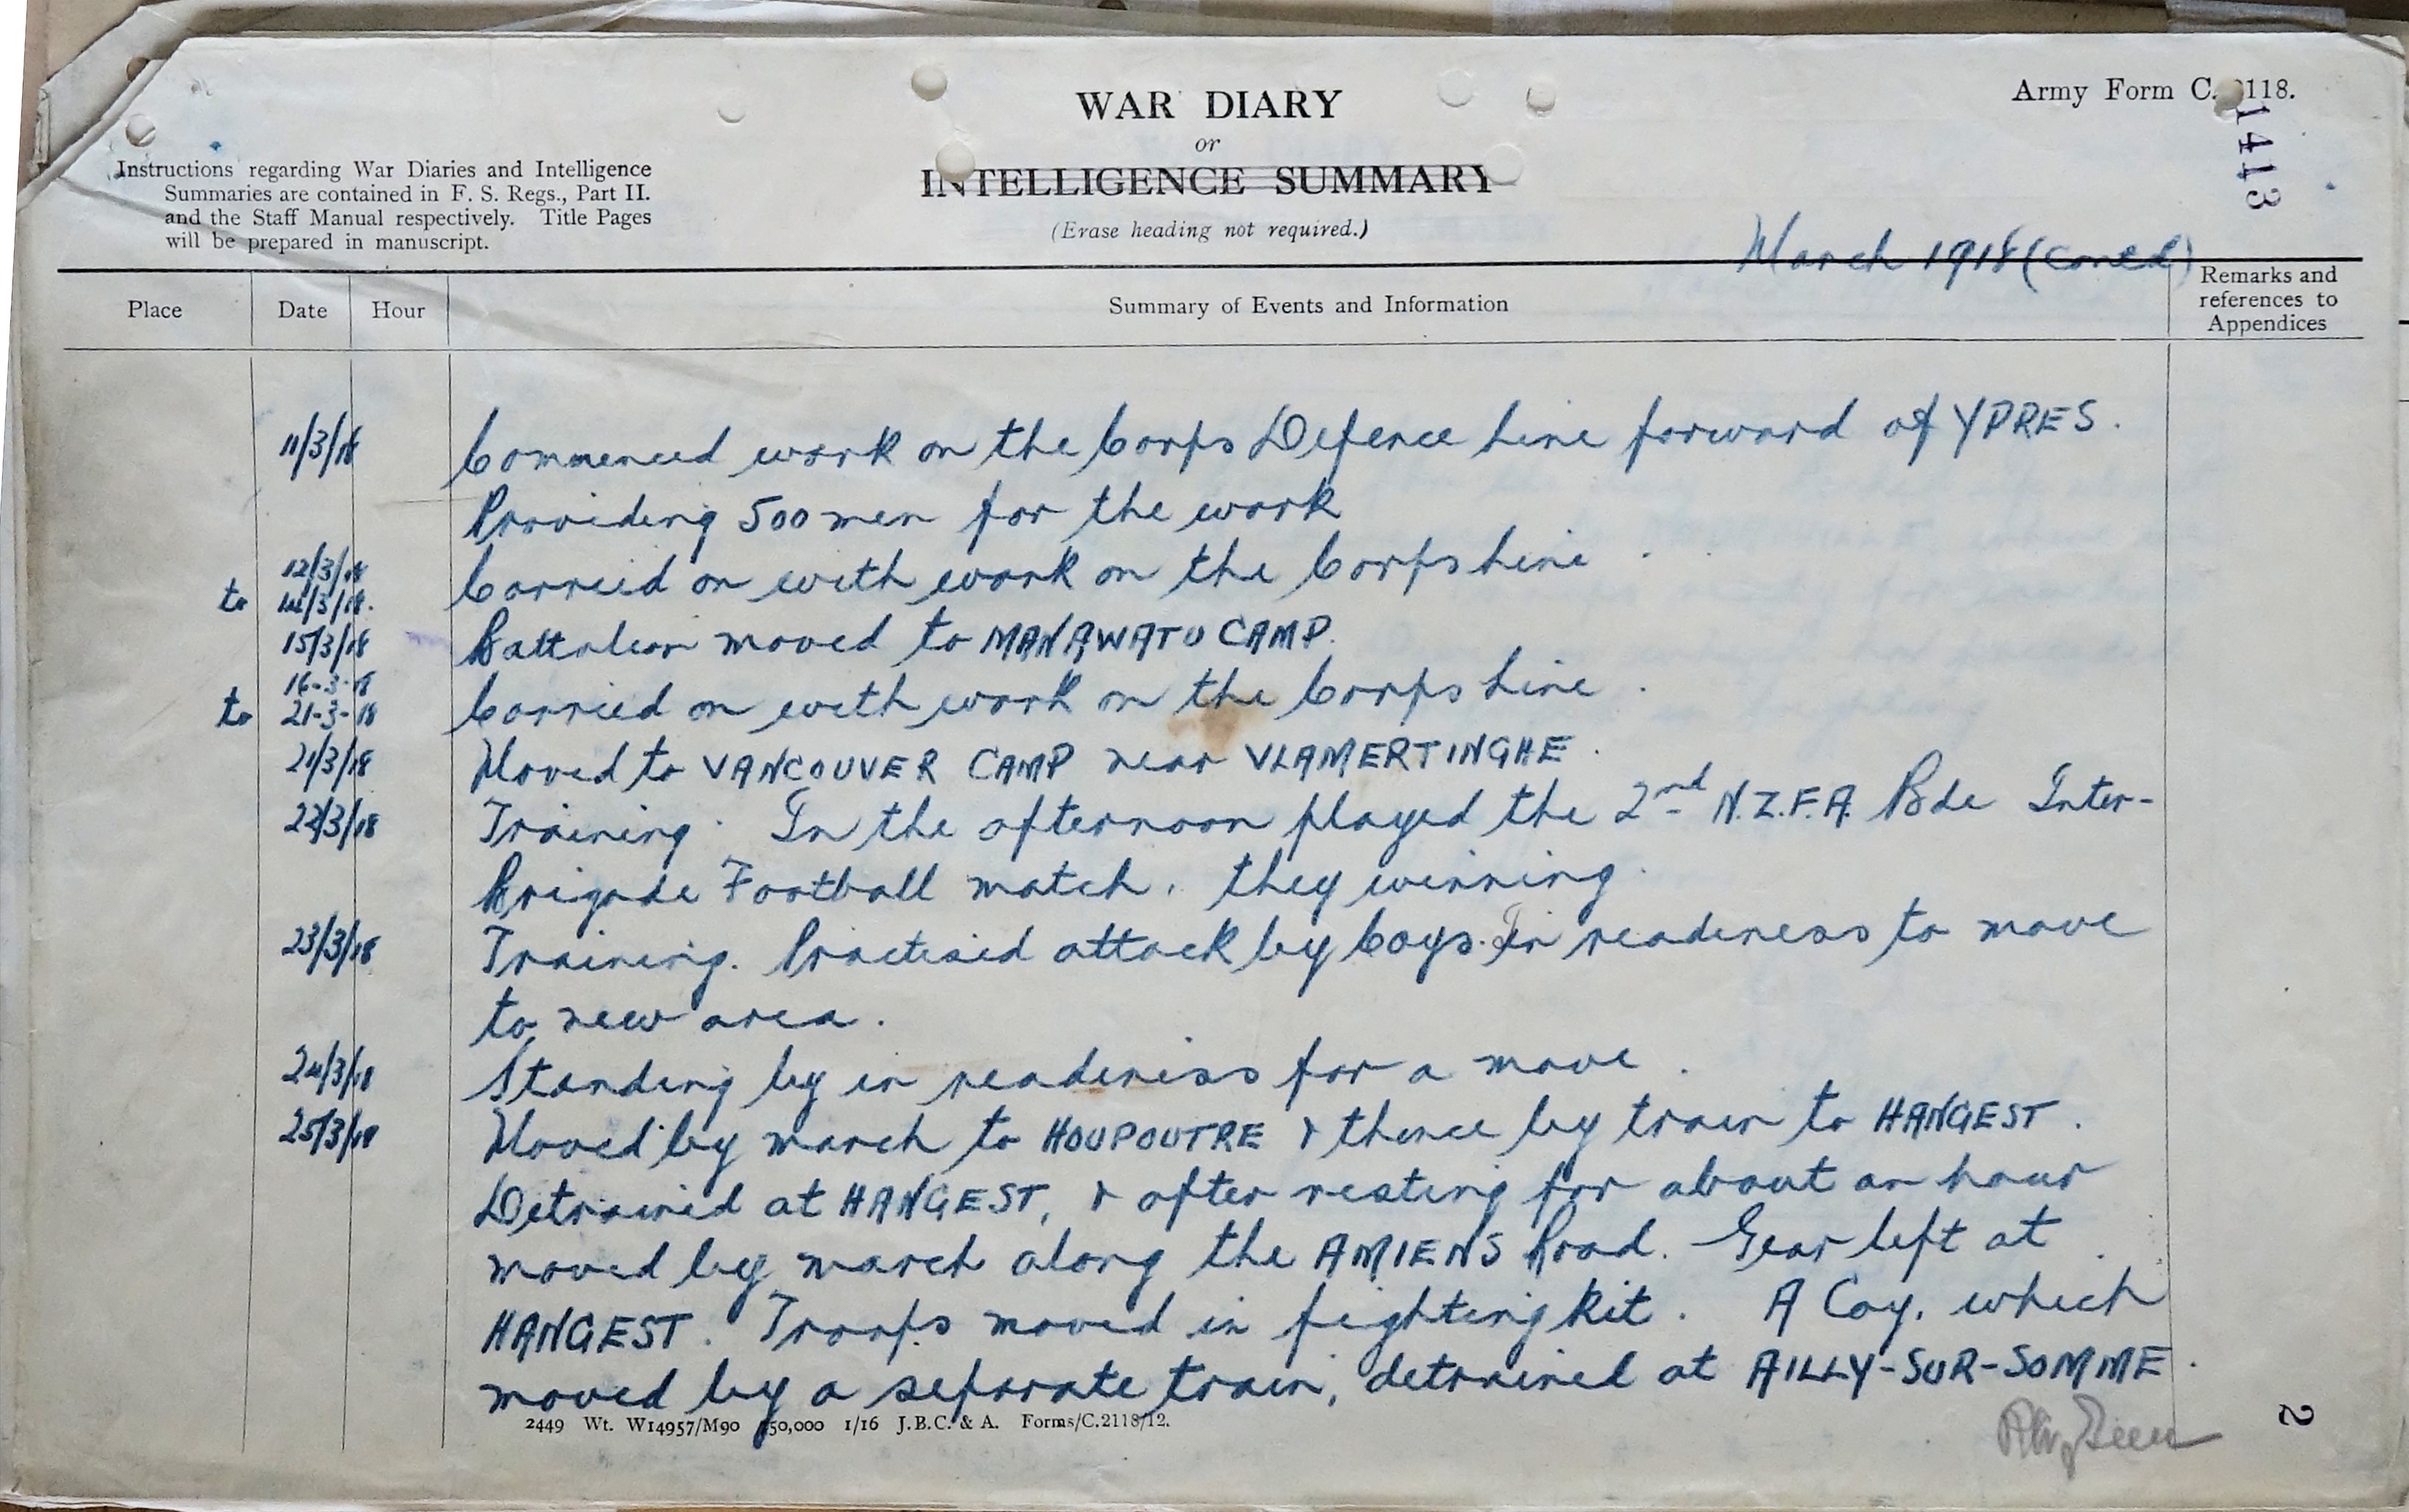 Army Form C. 2118.
1413
WAR DIARY
or
INTELLIGENCE SUMMARY
(Erase heading not required.)
Instructions regarding War Diaries and Intelligence
Summaries are contained in F. S. Regs., Part II.
and the Staff Manual respectively. Title Pages
will be prepared in manuscript.
March 1918 (contd)
Place Date Hour Summary of Events and Information Remarks and
references to
Appendices
11/3/18 Commenced work on the Corps Defence Line forward of YPRES.
Providing 500 men for the work
12/3/18
to 14/3/18. Carried on with work on the Corps Line.
15/3/18 Battalion moved to MANAWATU CAMP.
16-3-18
to 21-3-18 Carried on with work on the Corps Line.
21/3/18 Moved to VANCOUVER CAMP near VLAMERTINGHE.
22/3/18 Training. In the afternoon played the 2nd N.Z.F.A. Bde Inter-
Brigade Football match, they winning.
23/3/18 Training. Practised attack by Coys. In readiness to move
to new area.
24/3/18 Standing by in readiness for a move.
25/3/18 Moved by march to HOUPOUTRE & thence by train to HANGEST.
Detrained at HANGEST, & after resting for about an hour
moved by march along the AMIENS Road. Gear left at
HANGEST. Troops moved in fighting kit. A Coy. which
moved by a separate train, detrained at AILLY-SUR-SOMME.
2449 Wt. W14957/M90 750,000 1/16 J.B.C. & A. Forms/C.2118/12.
2